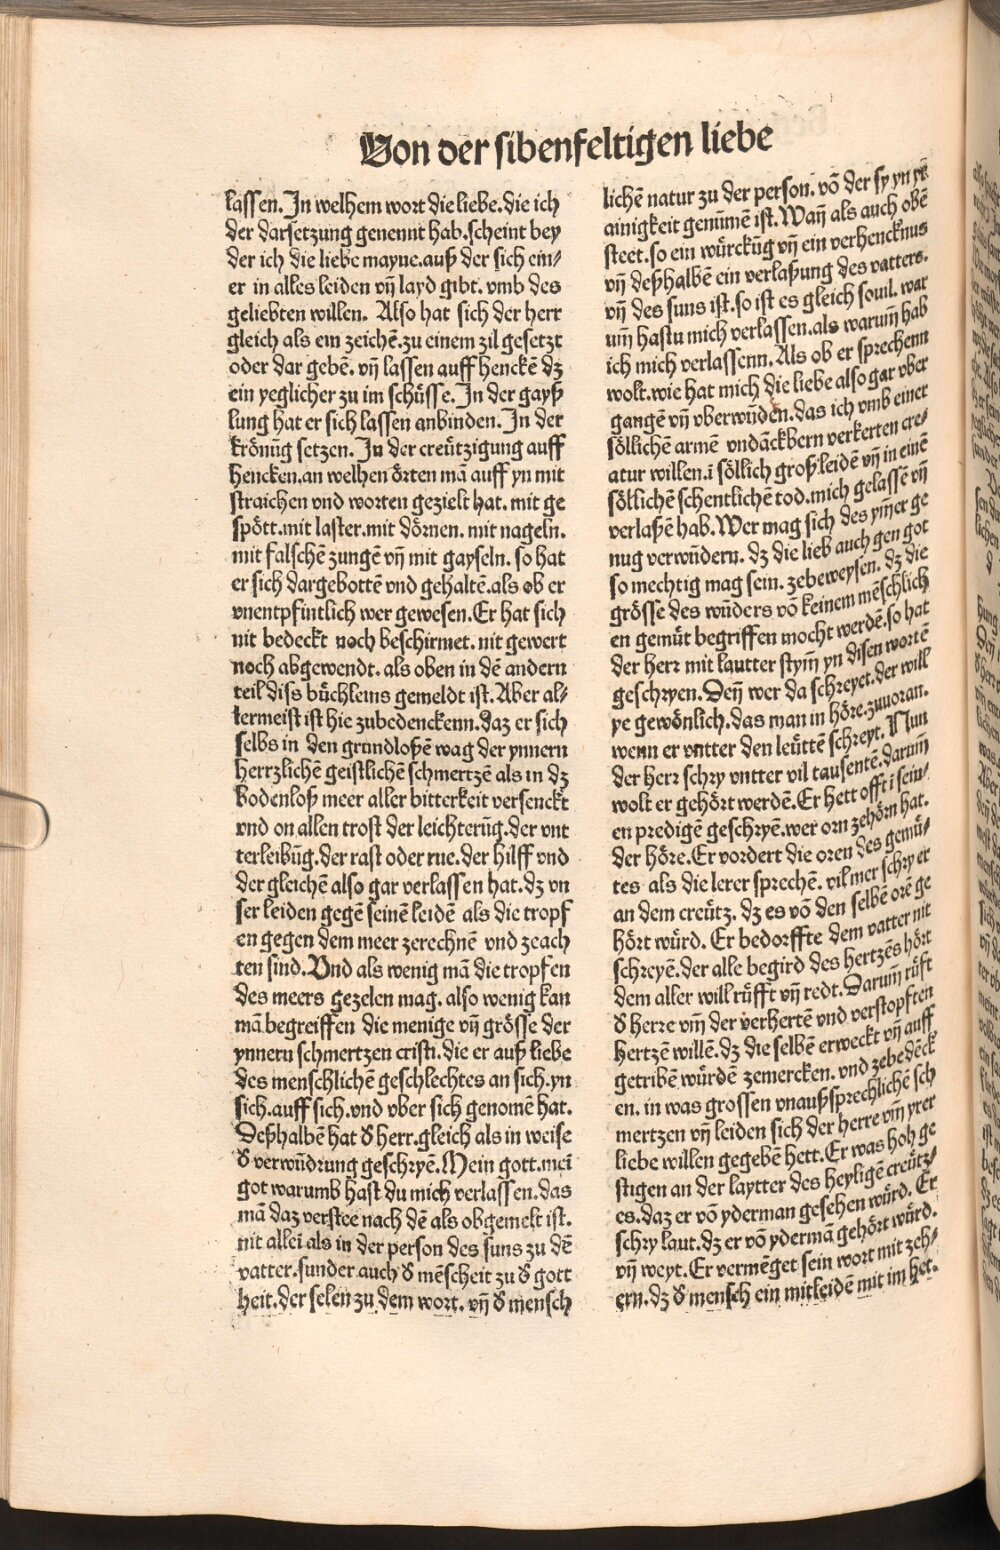 Von der sibenfeltigen liebe
lassen. In welhem wort die liebe. die ich
der darsetzung genennt hab. scheint bey
der ich die liebe mayne. auß der sich ein⸗
er in alles leiden vñ layd gibt. vmb des
geliebten willen. Also hat sich der herr
gleich als ein zeichē. zu einem zil gesetzt
oder dar gebē. vñ lassen auff henckē dz
ein yeglicher zu im schüsse. In der gayß
lung hat er sich lassen anbinden. In der
krönūg setzen. In der creützigung auff
hencken. an welhen örten mā auff yn mit
straichen vnd worten gezielt hat. mit ge
spött. mit laster. mit dörnen. mit nageln.
mit falschē zungē vñ mit gayseln. so hat
er sich dargebottē vnd gehaltē. als ob er
vnentpfintlich wer gewesen. Er hat sich
nit bedeckt noch beschirmet. nit gewert
noch abgewendt. als oben in dē andern
teil diss büchleins gemeldt ist. Aber al⸗
lermeist ist hie zubedenckenn. daz er sich
selbs in den grundloßē wag der ynnern
herrzlichē geistlichē schmertzē als in dz
bodenloß meer aller bitterkeit versenckt
vnd on allen trost der leichterūg. der vnt
terleibūg. der rast oder rue. der hilff vnd
der gleichē also gar verlassen hat. dz vn
ser leiden gegē seinē leidē als die tropf
en gegen dem meer zerechnē vnd zeach
ten sind. Vnd als wenig mā die tropfen
des meers gezelen mag. also wenig kan
mā begreiffen die menige vñ grösse der
ynnern schmertzen cristi. die er auß liebe
des menschlichē geschlechtes an sich. yn
sich. auff sich. vnd vber sich genomē hat.
Deßhalbē hat d̕ herr. gleich als in weise
d̕ verwūdrung geschryē. Mein gott. mei
got warumb hast du mich verlassen. das
mā daz verstee nach dē als obgemelt ist.
nit allei als in der person des suns zu dē
vatter. sunder auch d̕ mēscheit zu d̕ gott
heit. der selen zu dem wort. vñ d̕ mensch
lichē natur zu der person. vō der sy yn
ainigkeit genūmē ist. Wañ als auch obē
steet. so ein würckūg vñ ein verhencknus
vñ deßhalbē ein verlaßung des vatters.
vñ des suns ist. so ist es gleich souil. war
um̄ hastu mich verlassen. als warum̄ hab
ich mich verlassenn. Als ob er sprechenn
wolt. wie hat mich die liebe also gar vber
gangē vñ vberwūden. das ich vmb einer
söllichē armē vndāckbern verkerten cre⸗
atur willen. ī söllich groß leidē vñ in einē
söllichē schentlichē tod. mich gelassē vñ
verlaßē hab. Wer mag sich des ym̄er ge
nug verwūdern. dz die lieb auch gen got
so mechtig mag sein. zebeweysen. dz die
grösse des wūders vō keinem mēschlich
en gemüt begriffen mocht werdē. so hat
der herr mit lautter stym̄ yn disen wortē
geschryen. Deñ wer da schreyet. der will
ye gewönlich. das man in höre. zuuoran.
wenn er vntter den leüttē schreyt. Nun
der herr schry vntter vil tausentē. darum̄
wolt er gehört werdē. Er hett offt ī sein⸗
en predigē geschryē. wer orn zehörn hat.
der höre. Er vordert die oren des gemü⸗
tes als die lerer sprechē. vil mer schry er
an dem creütz. dz es vō den selbē orē ge
hört würd. Er bedorffte dem vatter nit
schreyē. der alle begird des hertzēs hört
dem aller will rüfft vñ redt. Darum̄ rüft
d̕ herre vm̄ der verhertē vnd verstopften
hertzē willē. dz die selbē erweckt vñ auff
getribē würdē zemercken. vnd zebedēck
en. in was grossen vnaußsprechlichē sch
mertzen vñ leiden sich der herre vm̄ yrer
liebe willen gegebē hett. Er was hoh ge
stigen an der laytter des heyligē creütz⸗
es. daz er vō yderman gesehen würd. Er
schry laut. dz er vō ydermā gehört würd.
vñ weyt. Er vermēget sein wort mit zeh⸗
ern. dz d̕ mensch ein mitleidē mit im het.